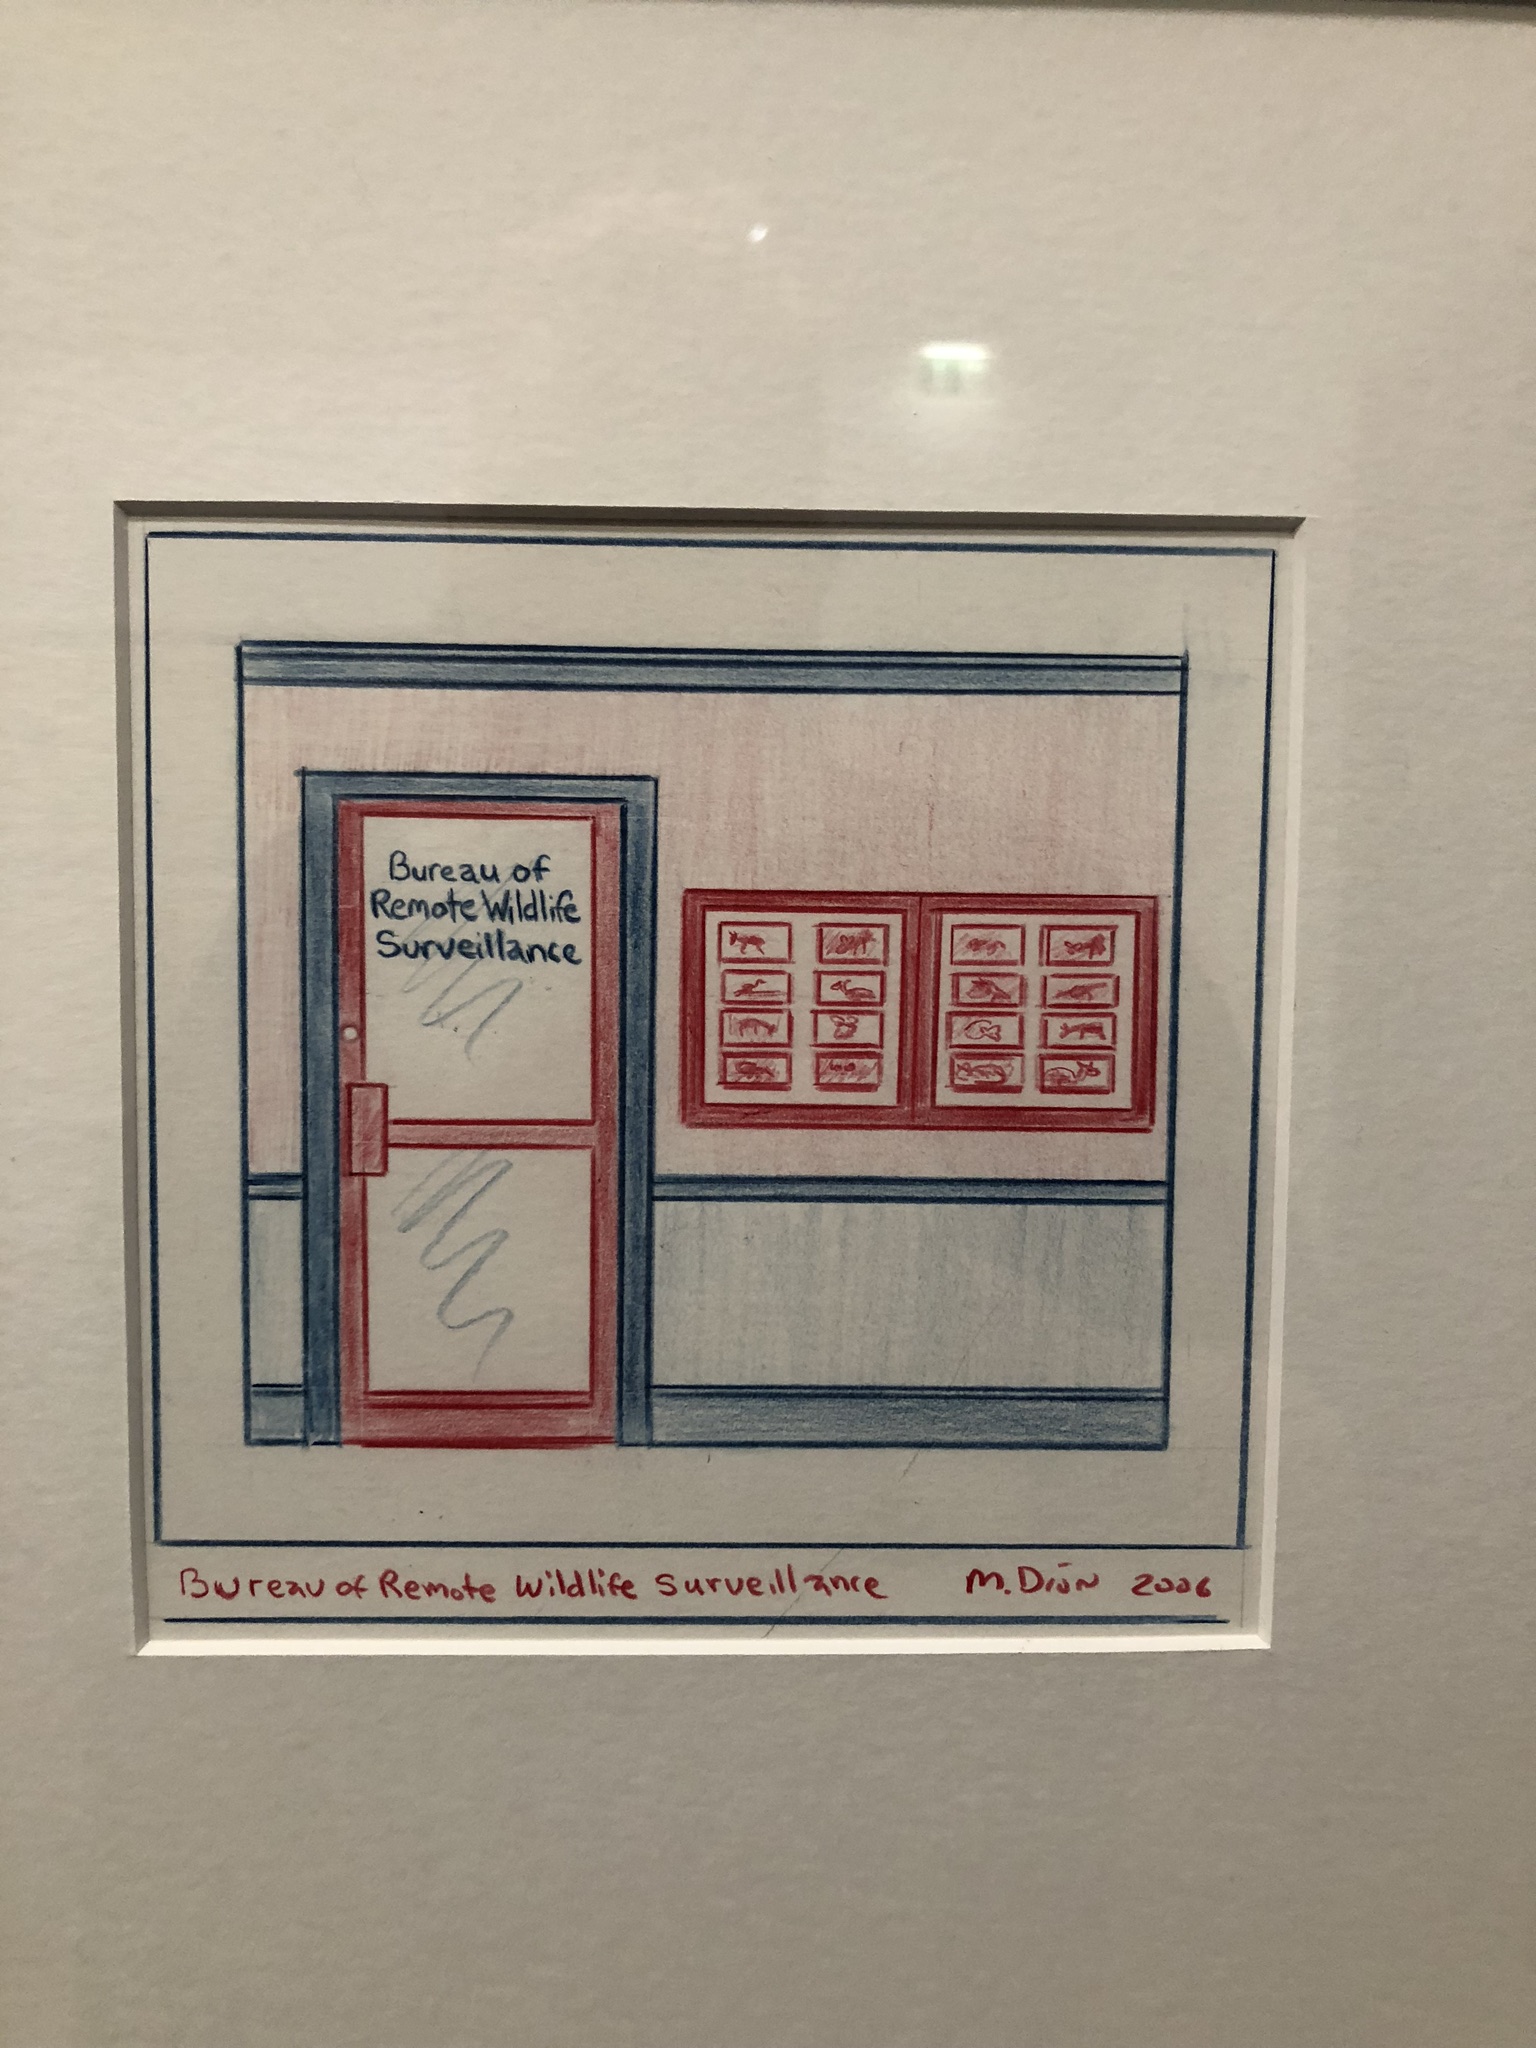 Bureau of
Remote Wildlife
Surveillance
Bureau of Remote Wildlife Surveillance M. Dion 2006